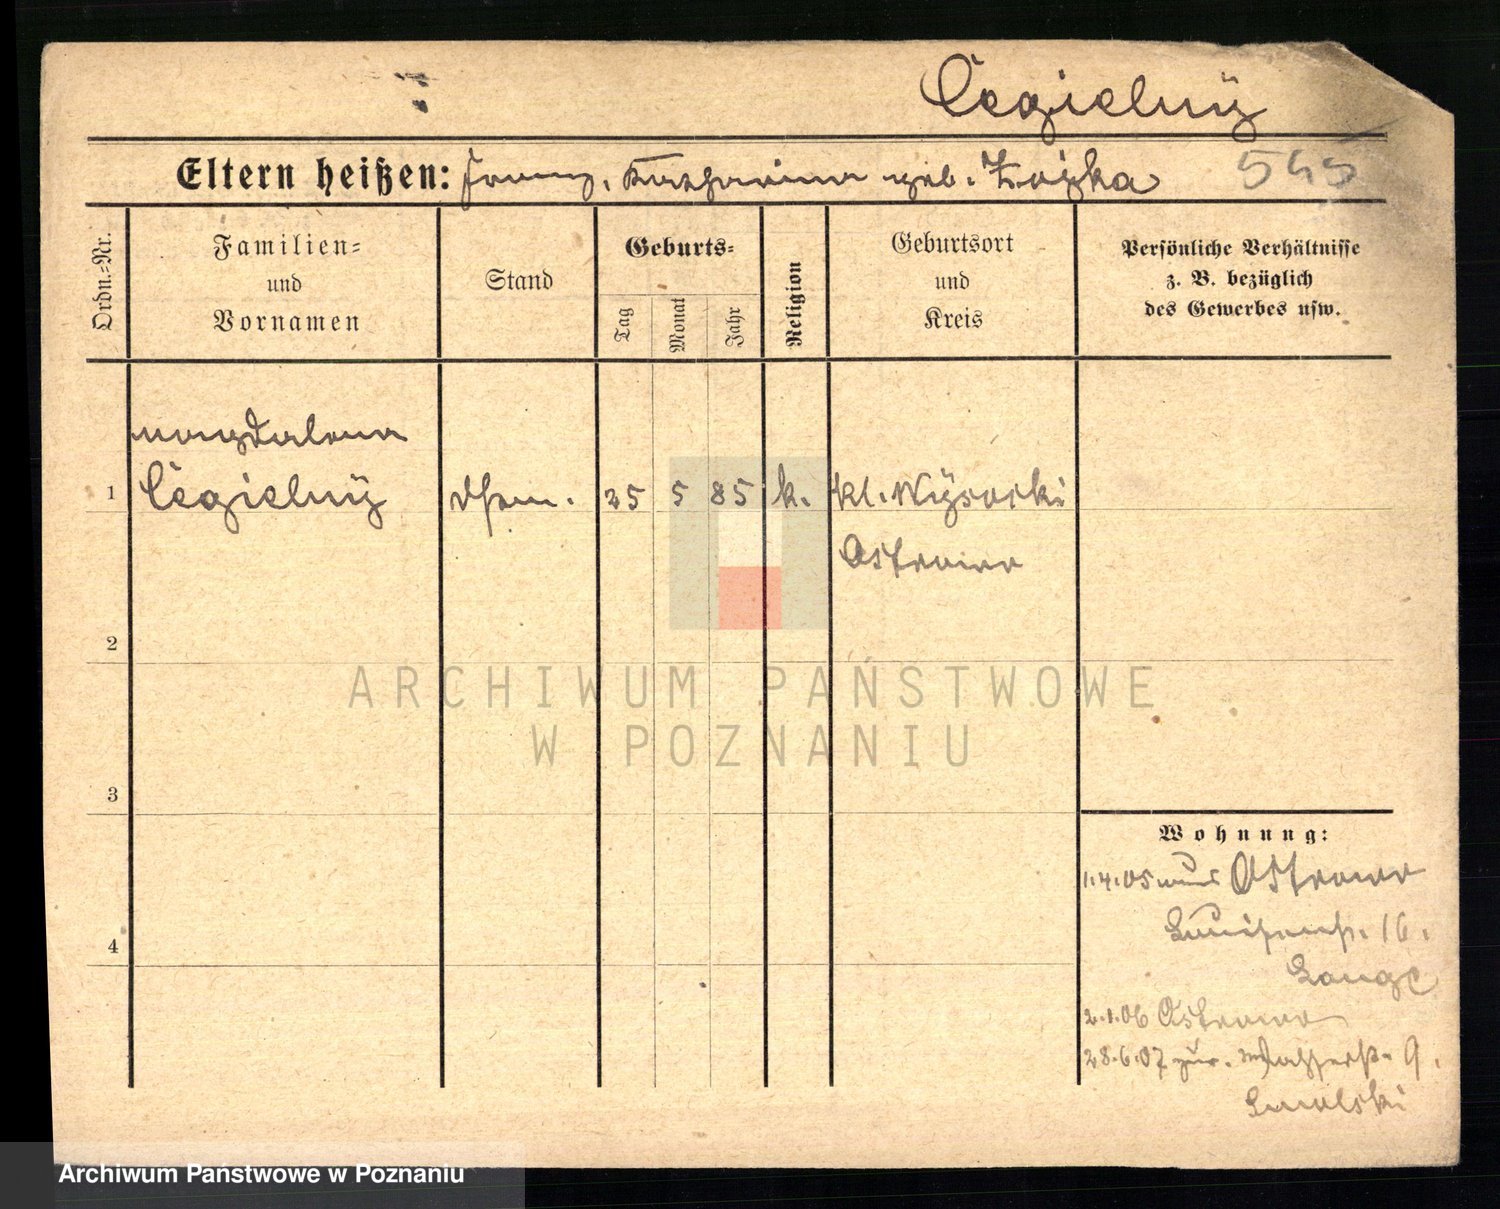 Cegielny
Eltern heißen: Franz, Katharina geb. Zoźka 545
Ordn.=Nr.
Familien=
und
Vornamen
Stand
Geburts=
Tag
Monat
Jahr
Religion
Geburtsort
und
Kreis
Persönliche Verhältnisse
z. B. bezüglich
des Gewerbes usw.
Magdalena
1 Cegielny 25 5 85 k. Kl. Wysocki
Ostrowo
2
ARCHIWUM PAŃSTWOWE
W POZNANIU
3
Wohnung:
1.4.05 aus Ostrowo
Luisenstr. 16.
Lange
4
2.1.06 Ostrowo
28.6.07 zur. 9.
Smolski
Archiwum Państwowe w Poznaniu